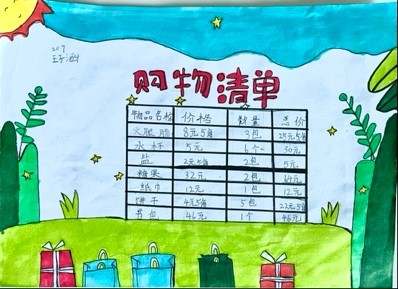 207
王子涵
购物清单
物品名称 价格 数量 总价
火腿肠 8元5角 3包 25元5角
水杯 5元 6个 30元
盐 2元5角 2包 5元
糖果 32元 2包 64元
纸巾 12元 1包 12元
饼干 4元5角 5包 22元5角
书包 46元 1个 46元